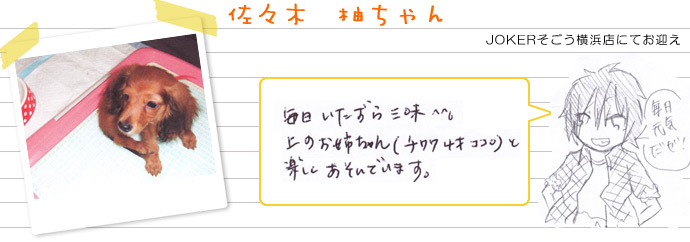 佐々木 柚ちゃん
JOKERそごう横浜店にてお迎え
毎日いたずら三昧^^。
上のお姉ちゃん(チワワ4才ココ)と
楽しくあそんでいます。
毎日
元気
だぜ!